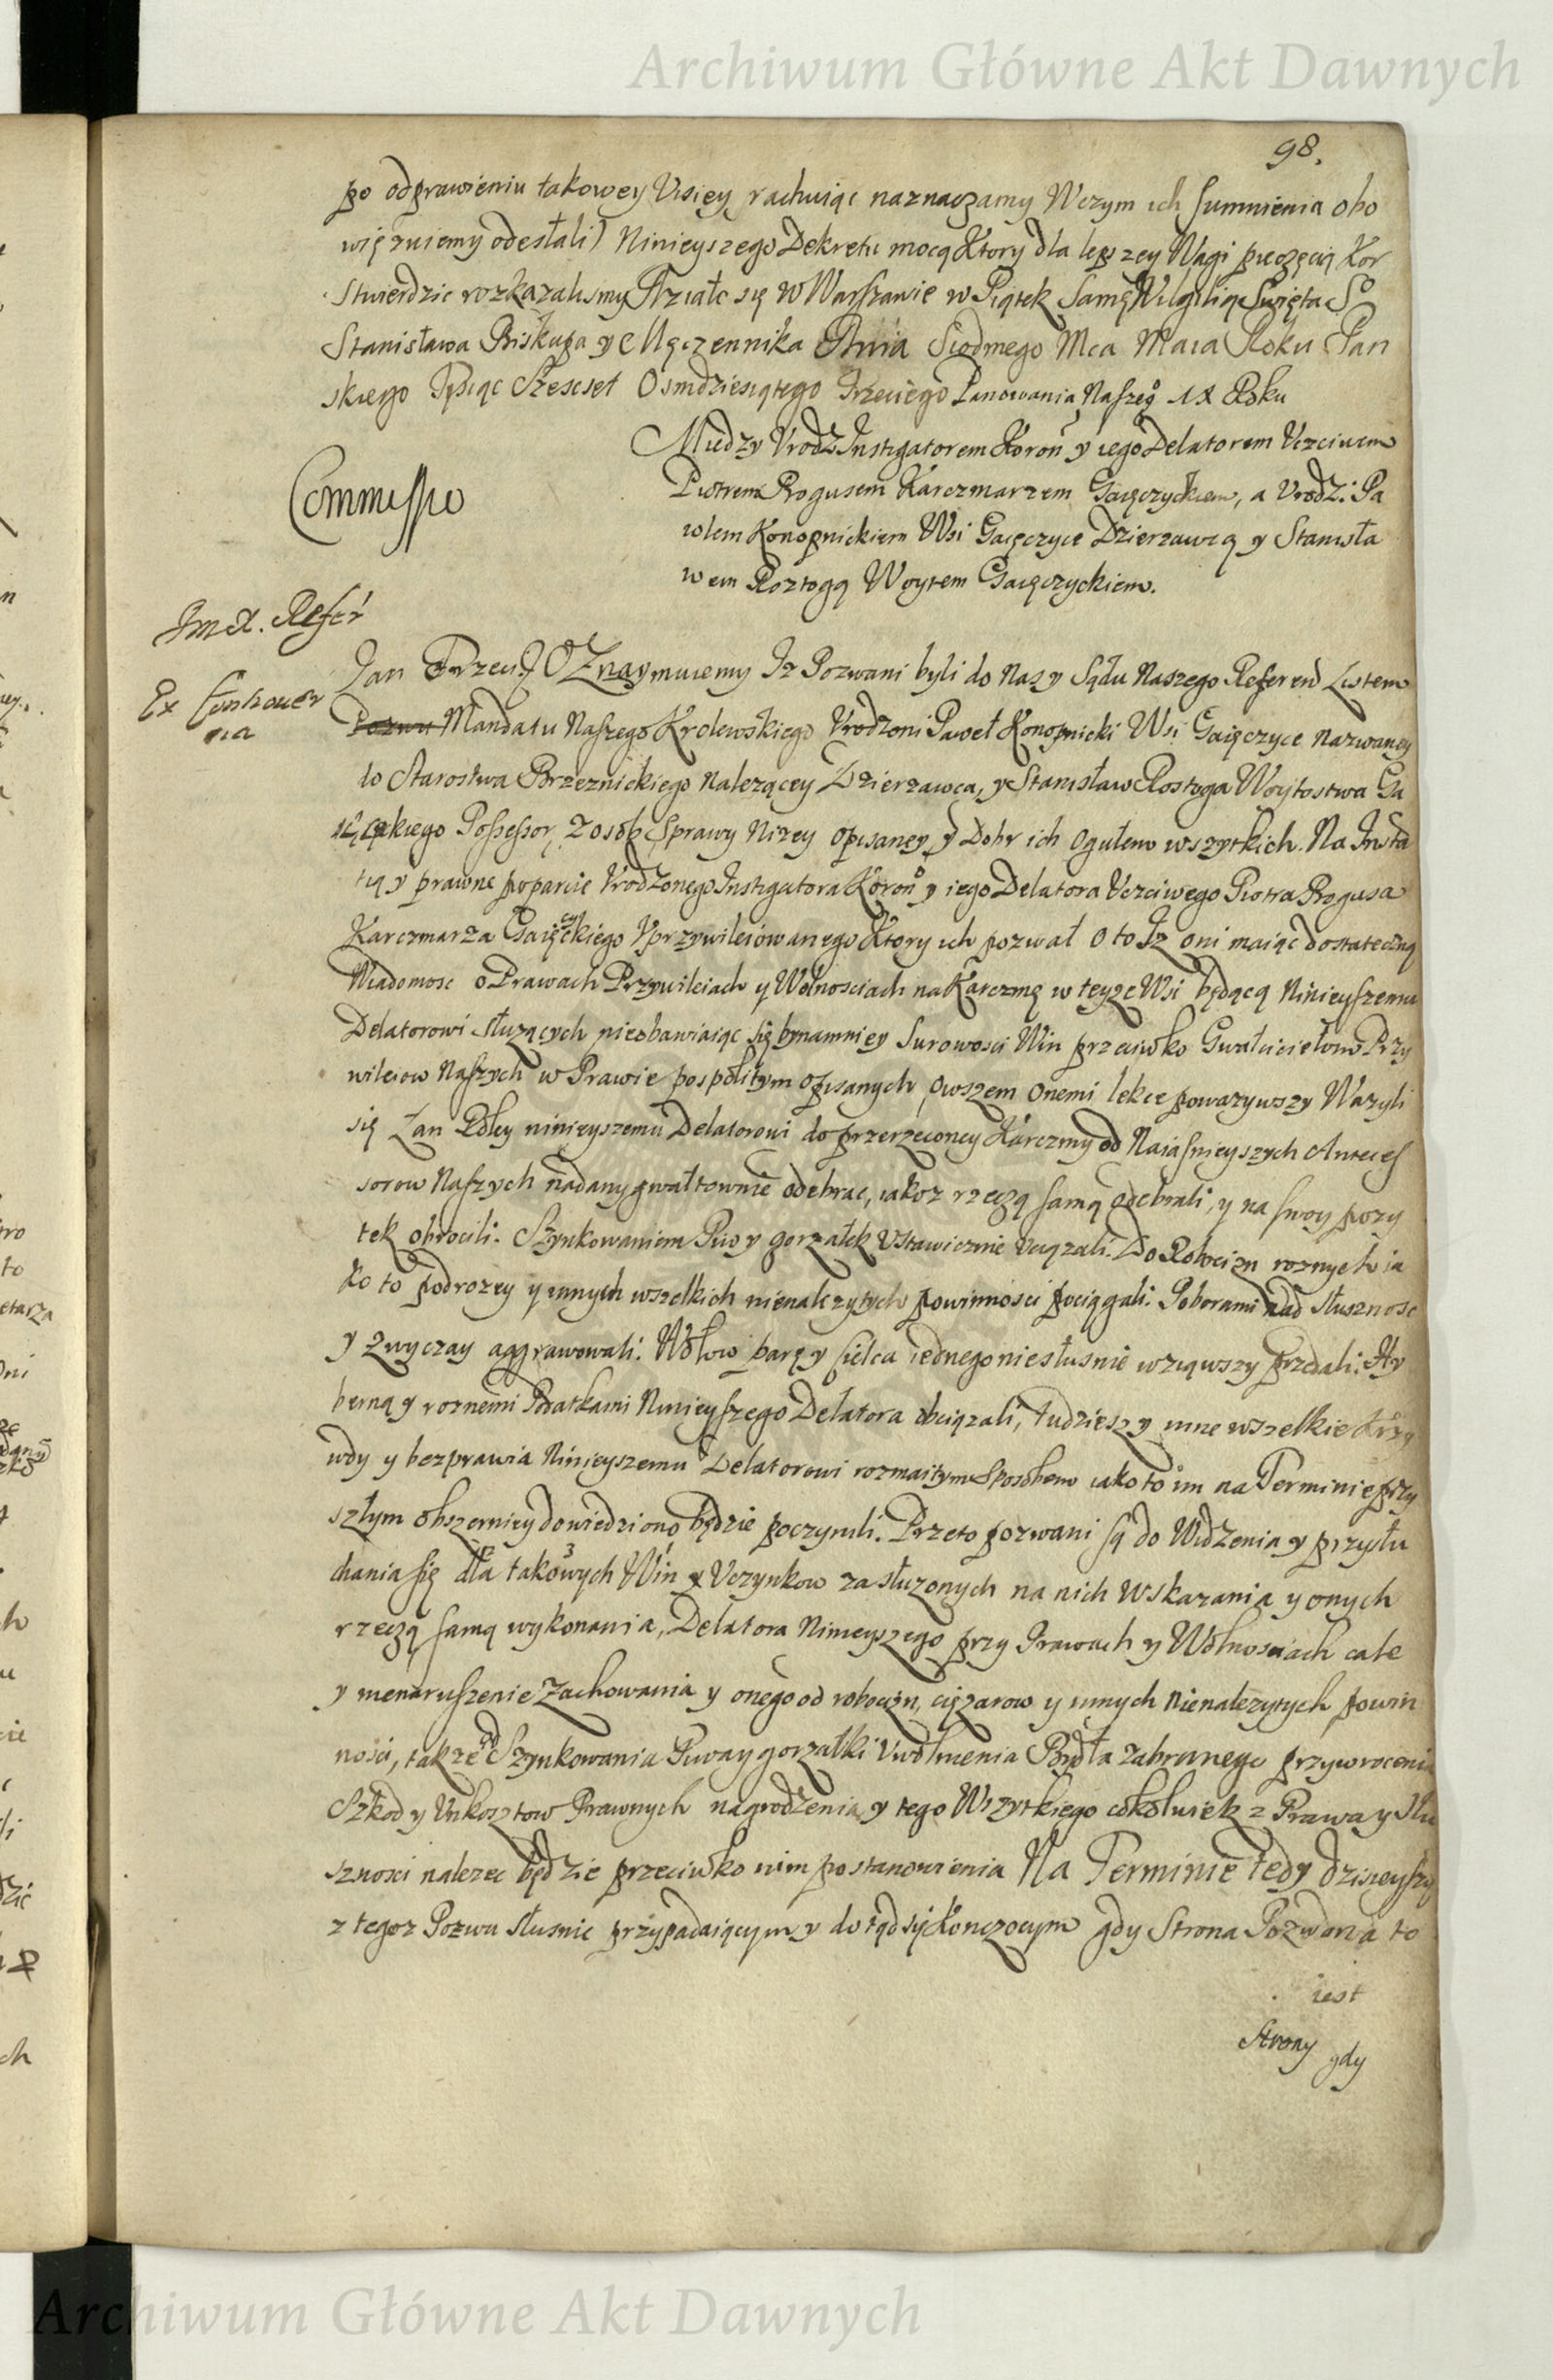 Archiwum Główne Akt Dawnych
98.
po odprawieniu takowey Visiey rachuiąc naznaczamy Wczym ich sumnienia obo
więzuiemy odesłali) Ninieyszego Dekretu mocą Ktory dla lepszey Wagi pieczęcią Kor
Stwierdzic rozkazalismy Działo się W Warszawie w Piątek Samę Wigilią Swięta So
Stanisława Biskupa y Męczennika Dnia Siodmego Mca Maia Roku Pan
skiego Tysiąc Szescset Osmdziesiątego Trzeciego Panowania Naszego IX Roku
Commissio
Między Vrodz Instigatorem Koron y iego Delatorem Vczciwem
Piotrem Rogusem Karczmarzem Gaięczyckiem, a Vrodz: Pa
wlem Konopnickiem Wsi Gaięczyce Dzierzawcą y Stanisła
wem Roztogą Woytem Gaięczyckiem.
Jan Trzeci Oznaymuiemy Iz Pozwani byli do Nas y Sądu Naszego Referend Listem
Pozwu Mandatu Naszego Krolewskiego Vrodzoni Paweł Konopnicki Wsi Gaięczyce Nazwaney
do Starostwa Brzeznickiego Nalezącey Dzierzawca, y Stanisław Rostoga Woytostwa Ga
ięckiego Possessor, z osob Sprawy Nizey opisaney y Dobr ich Ogułem wszytkich. Na Insta
tią y prawne poparcie Vrodzonego Instigatora Koron y iego Delatora Vczciwego Piotra Rogusa
Karczmarza Gaięczyckiego Vprzywileiowanego Ktory ich pozwał o to Iz oni maiąc dostateczną
Wiadomosc o Prawach Przywileiach y Wolnosciach na Karczmę w teyze Wsi będącą Ninieyszemu
Delatorowi służących nieobawiaiąc się bynamniey Surowosci Win przeciwko Gwałcicielow Przy
wileiow Naszych w Prawie pospolitym opisanych owszem onemi lekce powazywszy Wazyli
się Łan Roley ninieyszemu Delatorowi do przerzeconey Karczmy od Naiasnieyszych Anteces
sorow Naszych nadany gwałtownie odebrac, iakoz rzeczą samą odebrali, y na swoy pozy
tek obrocili. Szynkowaniem Piw y gorzałek Vstawicznie Vciązali. Do Robocizn roznych ia
ko to podrozey y innych wszelkich nienalezytych powinnosci pociągali: Poborami nad Słusznosc
y Zwyczay aggrawowali. Wołow parę y cielca iednego niesłusnie wziąwszy przedali: Hy
berną y roznemi Podatkami Ninieyszego Delatora obciązali, tudziesz y inne wszelkie krzy
wdy y bezprawia Ninieyszemu Delatorowi rozmaitym Sposobem iako to im na Terminie przy
szłym obszerniey dowiedziono będzie poczynili. Przeto pozwani są do Widzenia y przysłu
chania się dla takowych Win y Vczynkow zasłuzonych na nich Wskazania y onych
rzeczą samą wykonania, Delatora Ninieyszego przy Prawach y Wolnosciach cale
y nienaruszenie Zachowania y onego od robocizn, cięzarow y innych Nienalezytych powin
nosci, takze od Szynkowania Piwa y gorzałki Vwolnienia Bydła zabranego przywrocenia
Szkod y Vnkosztow Prawnych nagrodzenia y tego Wszytkiego cokolwiek z Prawa y Słu
sznosci nalezec będzie przeciwko nim postanowienia Na Terminie tedy dzisieyszy
z tegoz Pozwu słusnie przypadaiącym y dotąd się konczącym gdy Strona Pozwana to
iest
Strony gdy
Archiwum Główne Akt Dawnych